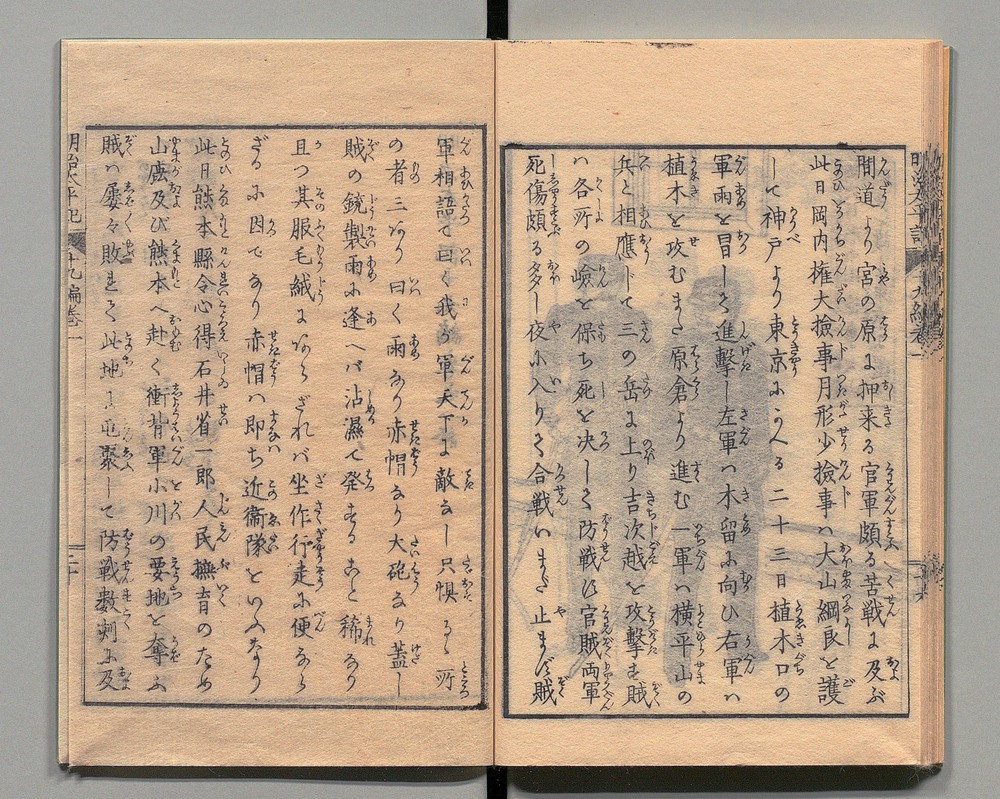 間道より宮の原に押来る官軍頗る苦戦に及ぶ
此日岡内権大撿事月形少撿事ハ大山綱良を護
して神戸より東京にかへる二十三日植木口の
軍雨を冒して進撃し左軍ハ木留に向ひ右軍ハ
植木を攻むまた原倉より進む一軍ハ横平山の
兵と相應じて三の岳に上り吉次越を攻撃す賊
ハ各所の嶮を保ち死を决して防戦し官賊両軍
死傷頗る多し夜に入りて合戦いまだ止まず賊
軍相語て曰く我が軍天下に敵なし只惧るゝ所
の者三あり曰く雨なり赤帽なり大砲なり蓋し
賊の銃製雨に逢へバ沾濕て発すること稀なり
且つ其服毛絨にあらざれバ坐作行走に便なら
ざるに因てなり赤帽ハ即ち近衞隊をいふなり
此日熊本縣令心得石井省一郎人民撫育のため
山鹿及び熊本へ赴く衝背軍小川の要地を奪ふ
賊ハ屡々敗れて此地に屯聚して防戦数刻に及
明治太平記
十九編巻一
二十